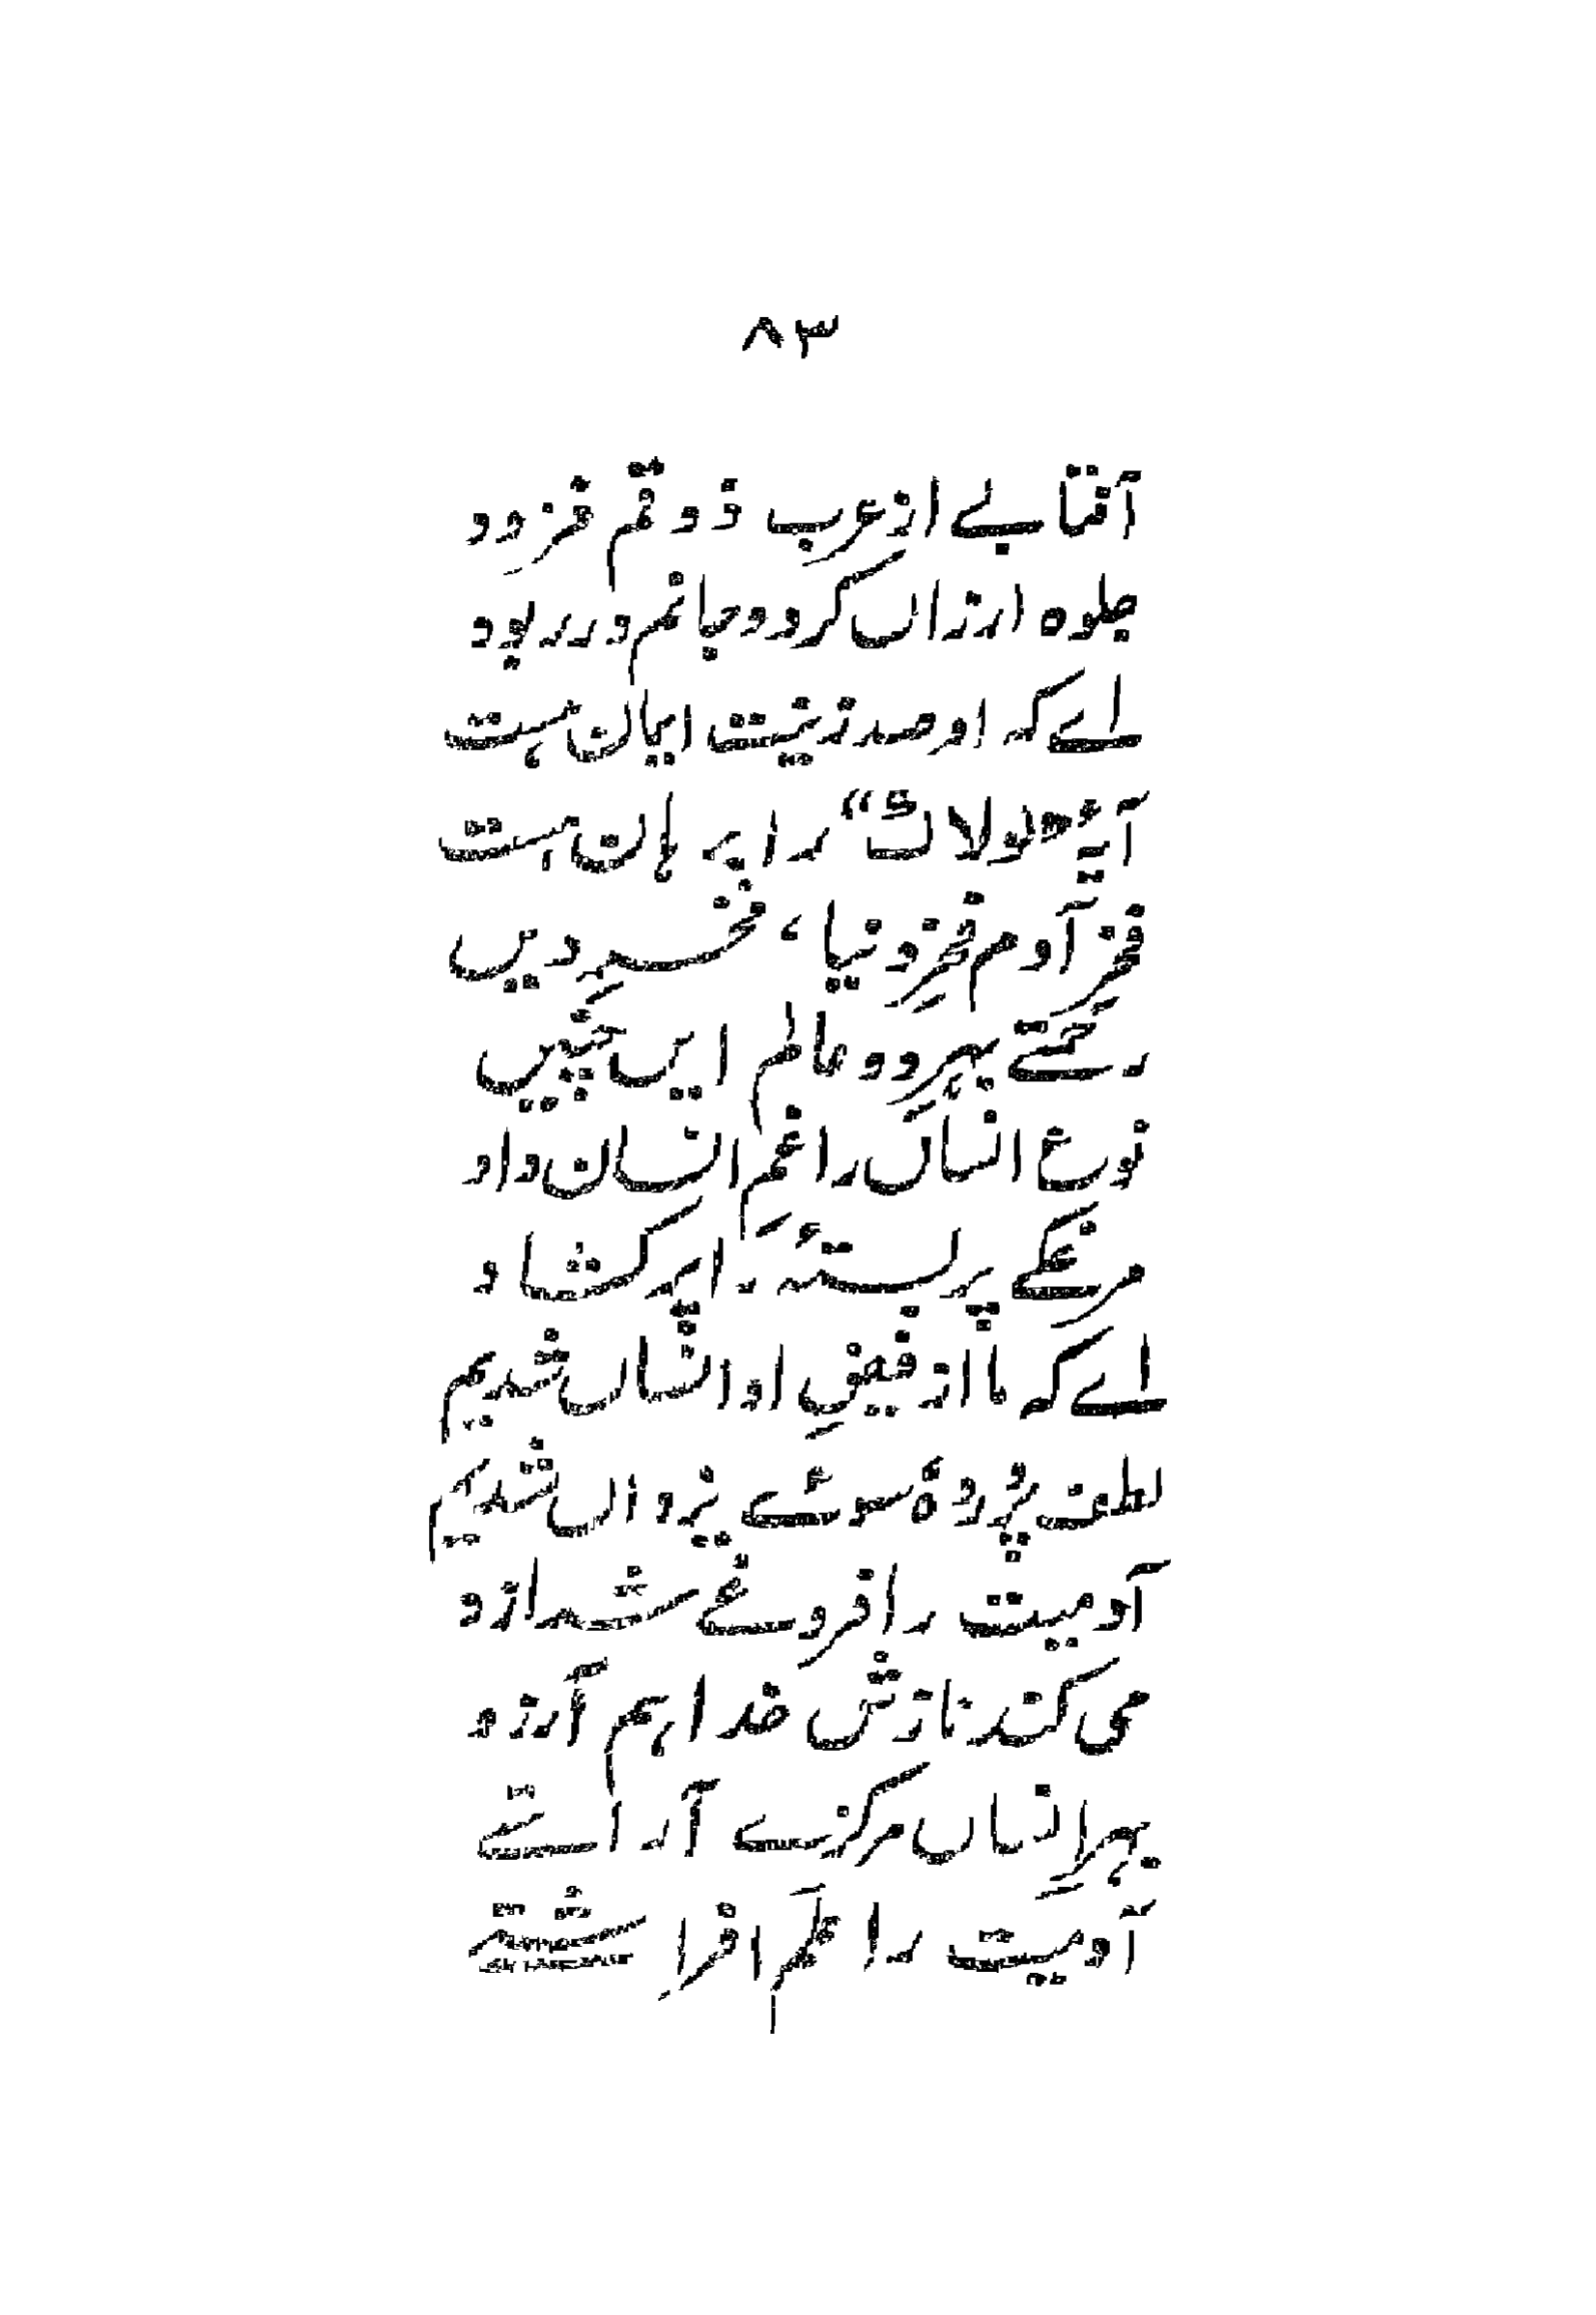 ۸۳
آفتابے از عرب ذوقم فزود
جلوه ارزاں کرد و جانم در ربود
اے که او صد زینت ایمان هست
آیۂ "لولاک" را برهان هست
فخرِ آدم فخرِ دنیا، فخر دیں
رحمتے بهرِ دو عالم ایں چنیں
نوعِ انساں را غمِ انسان داد
مرغکے پر بستۂ را پر کشاد
اے که ما از فیضِ او انساں شدیم
لطف پُردۂ سوئے یزداں شدیم
آدمیت را فروغے شد ازو
می کند نازش خدا هم آرزو
بهرِ انساں مرکزے آراستے
آدمیت را عَلَم افراشتے